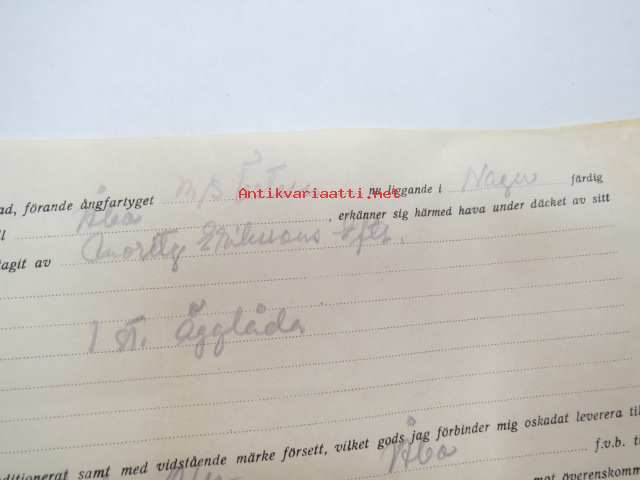 Antikvariaatti.net
ad, förande ångfartyget m/s nu liggande i Nagu färdig
ll Åbo , erkänner sig härmed hava under däcket av sitt
tagit av Erikssons
1 st. Ägglåda
ditionerat samt med vidstående märke försett, vilket gods jag förbinder mig oskadat leverera til
Åbo f.v.b. ti
mot överenskomm